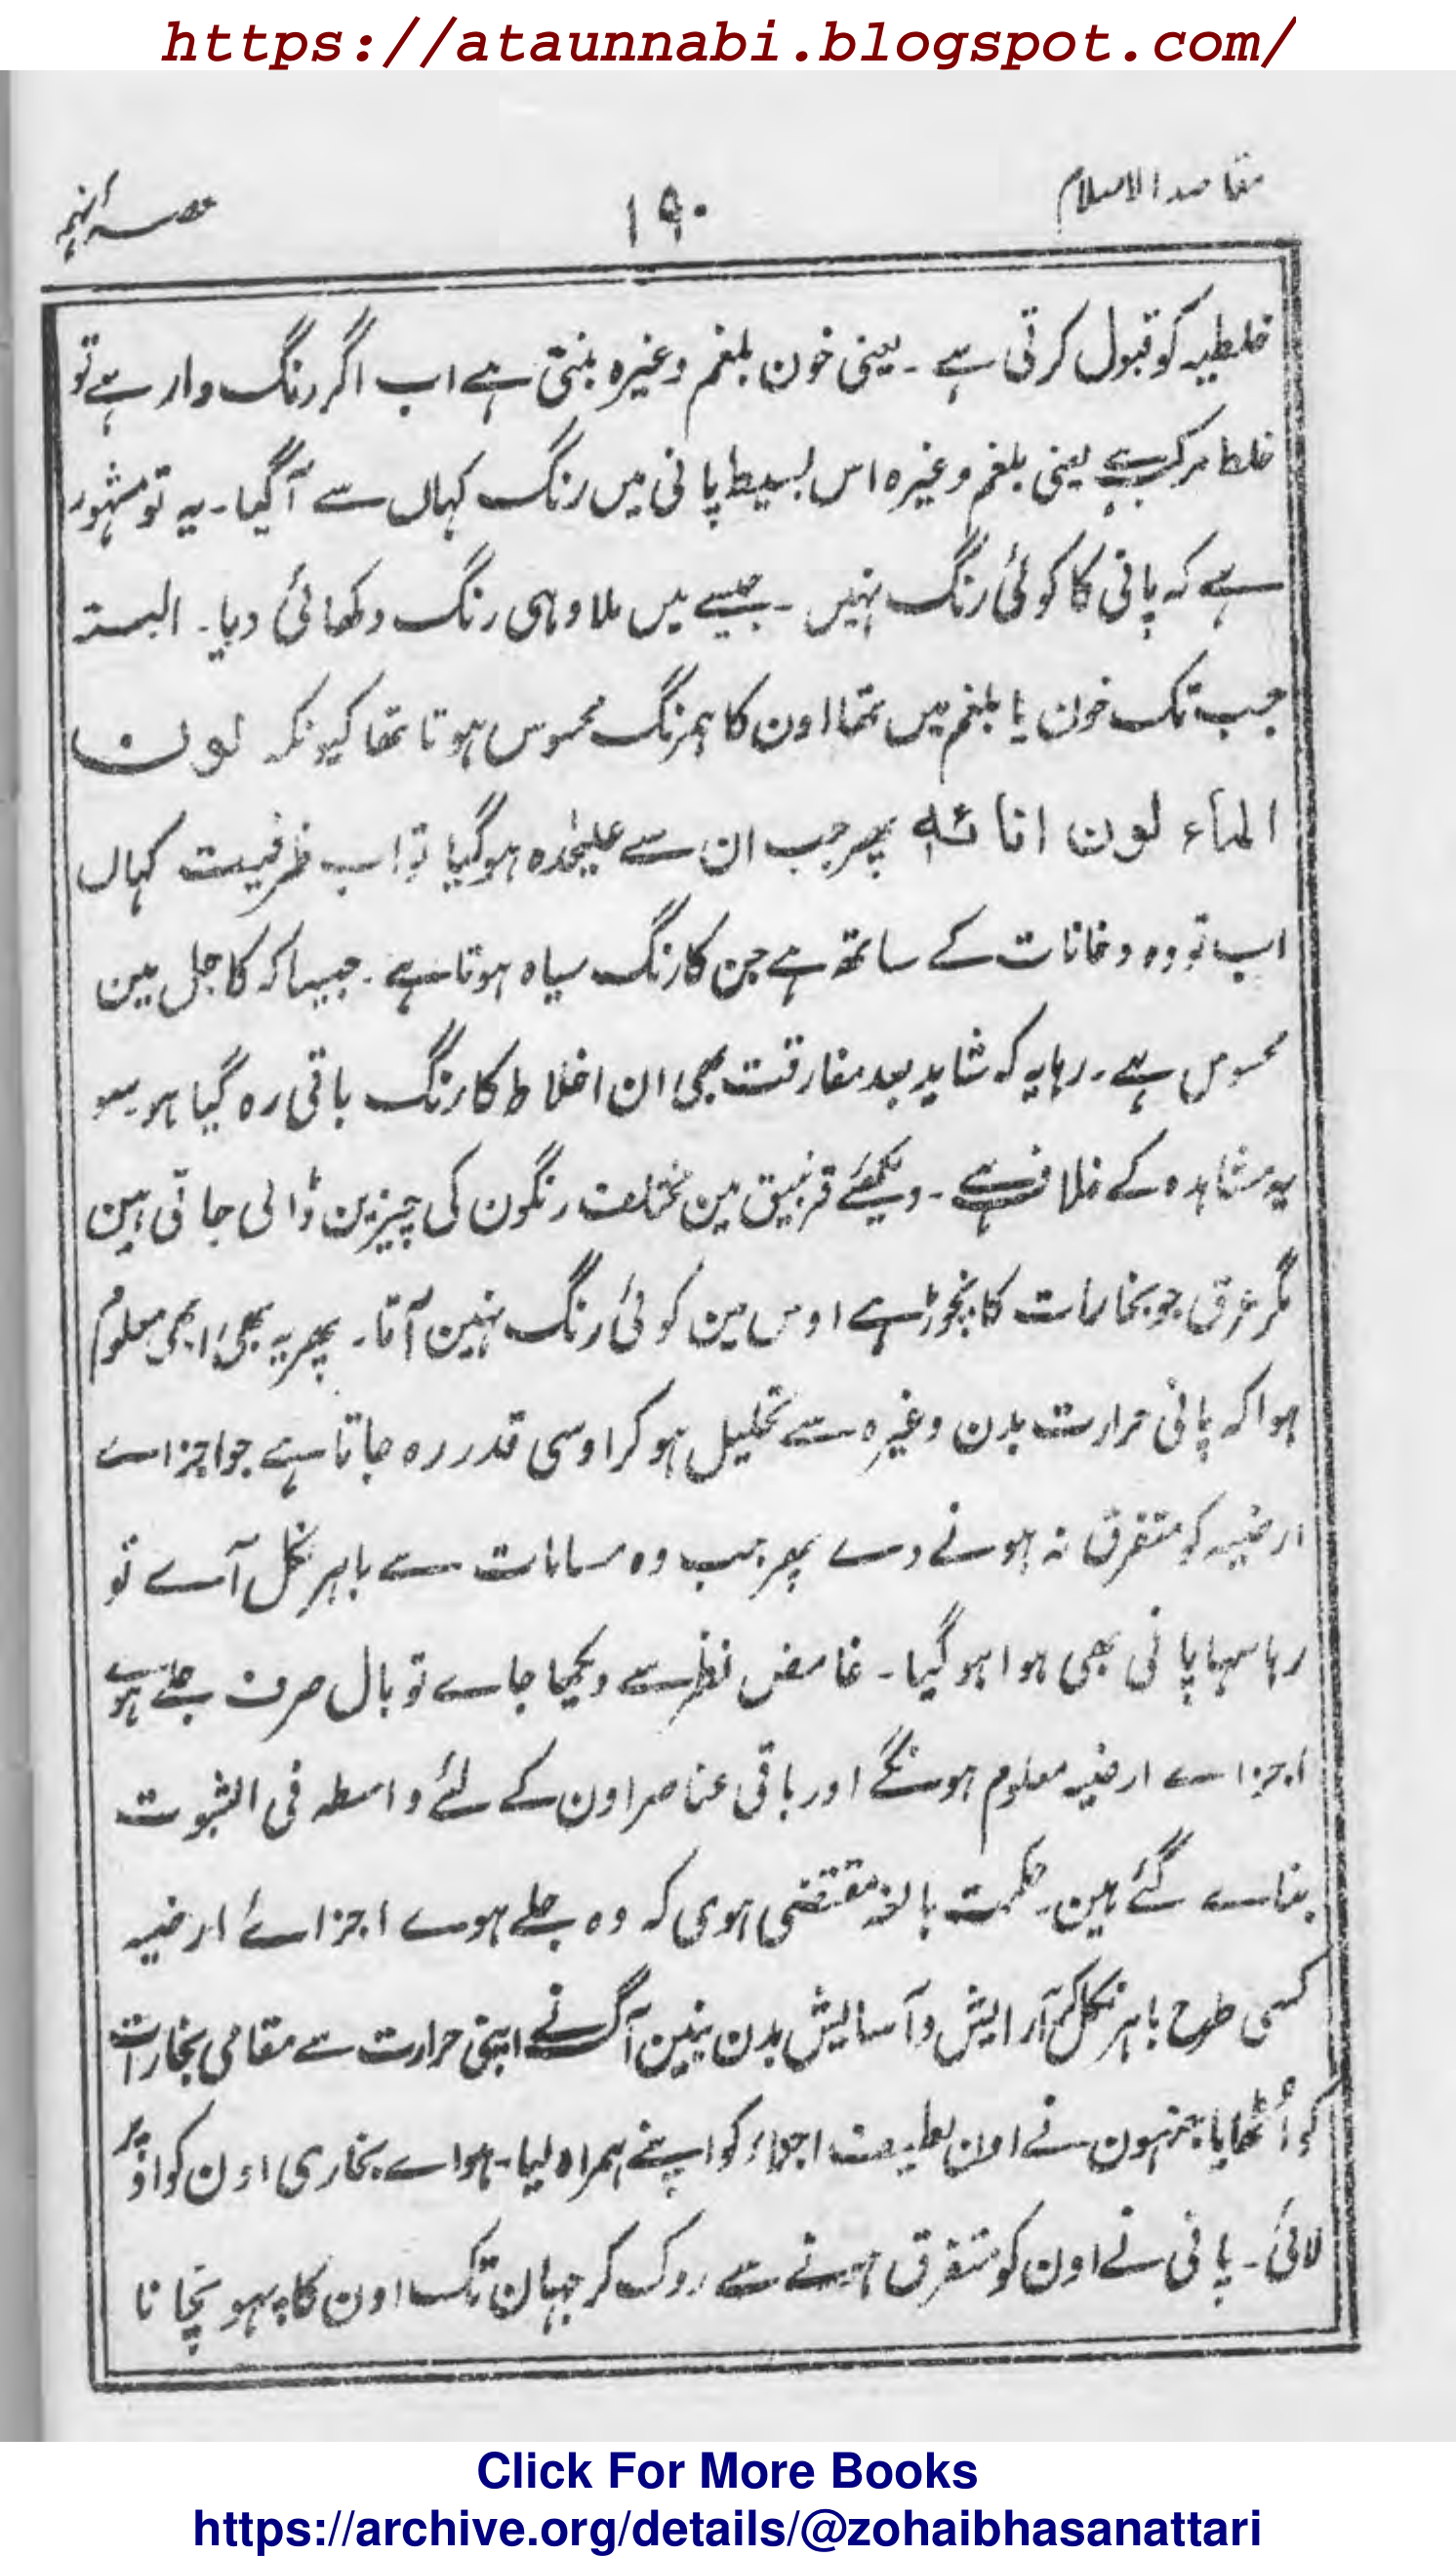 https://ataunnabi.blogspot.com/
مقاصد الاسلام
۱۹۰
حصہ نہم
خلطیہ کو قبول کرتی ہے ۔ یعنی خون بلغم وغیرہ بنتی ہے اب اگر رنگ دار ہے تو
خلط مرکب ہے یعنی بلغم وغیرہ اس بسیط پانی میں رنگ کہاں سے آگیا ۔ یہ تو مشہور
ہے کہ پانی کا کوئی رنگ نہیں ۔ جیسے میں ملا وہی رنگ دکھائی دیا ۔ البتہ
جب تک خون یا بلغم میں تھا اون کا ہمرنگ محسوس ہوتا تھا کیونکہ لون
الماء لون انائہ پھر جب ان سے علیحدہ ہوگیا تو اب ظرفیت کہاں
اب تو وہ دخانات کے ساتھ ہے جن کا رنگ سیاہ ہوتا ہے ۔ جیسا کہ کاجل مین
محسوس ہے ۔ رہا یہ کہ شاید بعد مفارقت بھی ان اخلاط کا رنگ باقی رہ گیا ہو سو
یہ مشاہدہ کے خلاف ہے ۔ دیکھئے قرنبیق مین مختلف رنگون کی چیزین ڈالی جاتی ہین
مگر عرق جو بخارات کا نچوڑ ہے اوس مین کوئی رنگ نہین آتا ۔ پھر یہ بھی ابھی معلوم
ہوا کہ پانی حرارت بدن وغیرہ سے تحلیل ہو کر اوسی قدر رہ جاتا ہے جو اجزاے
ارضیہ کو متفرق نہ ہونے دے پھر جب وہ مسامات سے باہر نکل آے تو
رہا سہا پانی بھی ہوا ہو گیا ۔ غامض نظر سے دیکھا جاے تو بال صرف جلے ہوے
اجزاے ارضیہ معلوم ہونگے اور باقی عناصر اون کے لئے واسطہ فی الثبوت
بناے گئے ہین ۔ حکمت بالغہ مقتضی ہوی کہ وہ جلے ہوے اجزاے ارضیہ
کسی طرح باہر نکل کر آرایش و آسایش بدن بنین آگ نے اپنی حرارت سے مقامی بخارات
کو اُٹھایا جنہون نے اون لطیف اجزاء کو اپنے ہمراہ لیا ۔ ہواے بخاری اون کو اوپر
لائی ۔ پانی نے اون کو متفرق ہونے سے روک کر جہان تک اون کا پہونچانا
Click For More Books
https://archive.org/details/@zohaibhasanattari